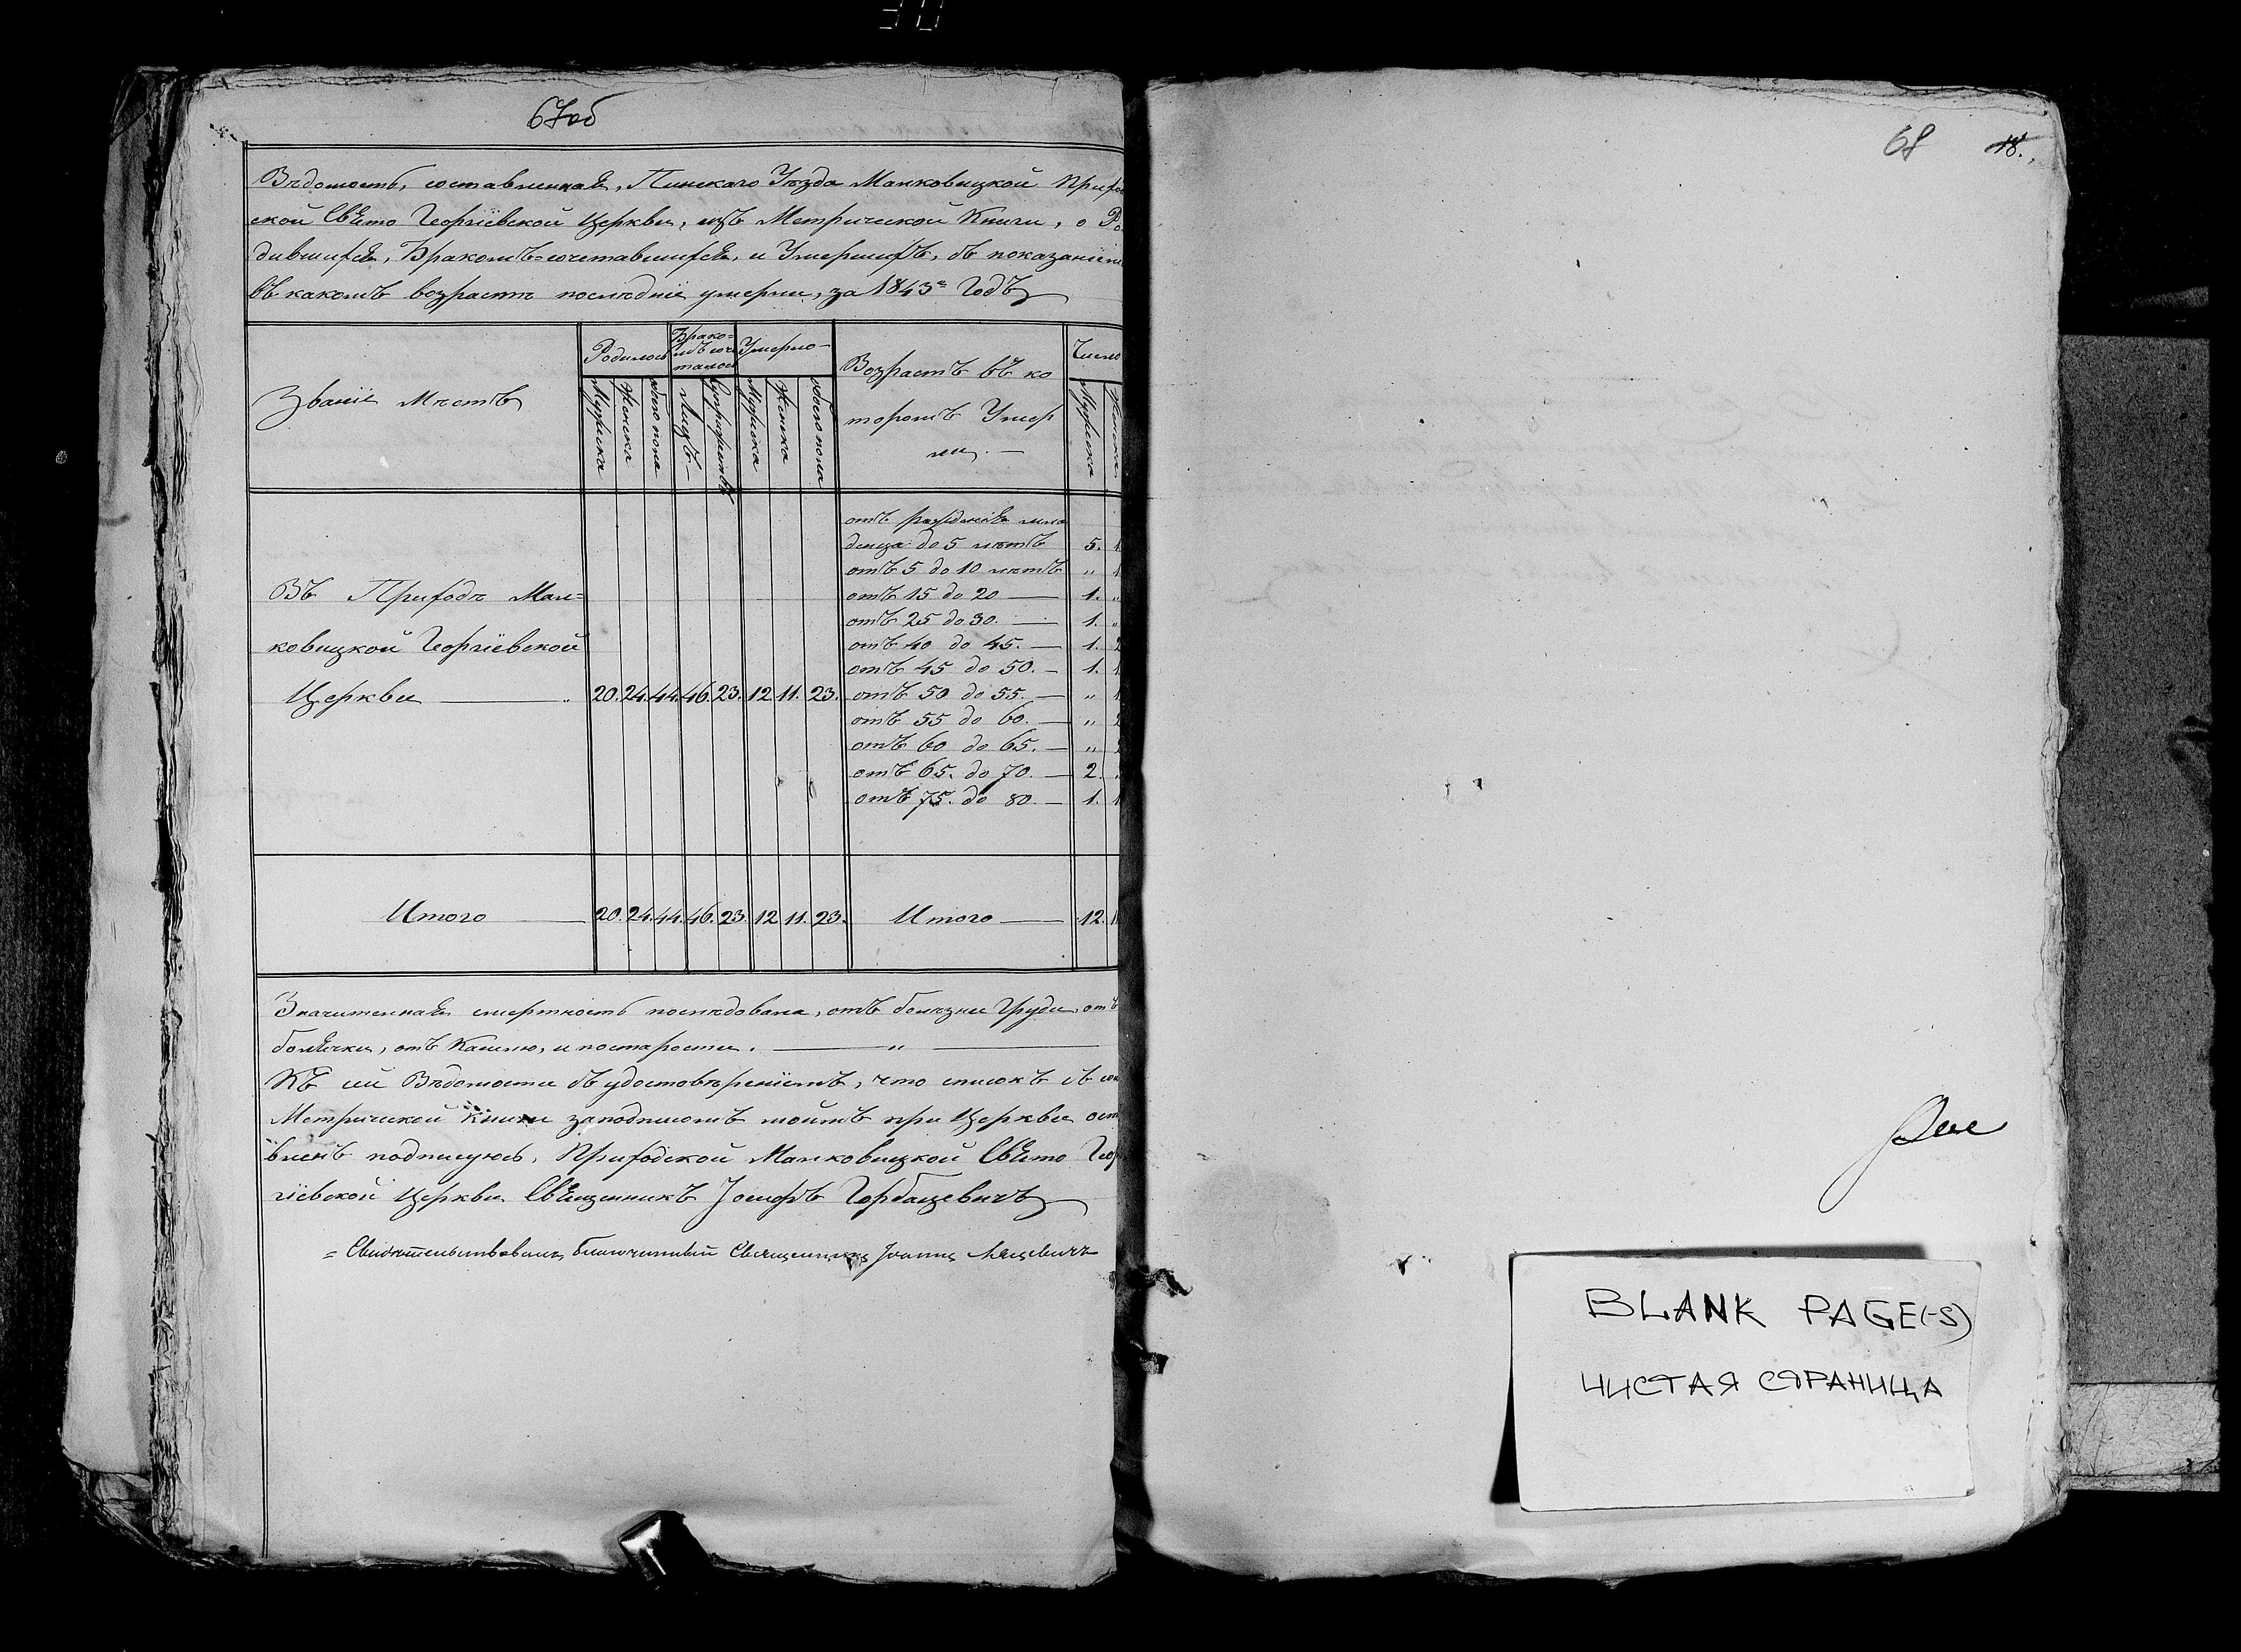 67об
Вѣдомость, составленная, Пинскаго Уѣзда Малковицкой Прихо
ской Свято Георгіевской Церкви, изъ Метрической Книги, о Ро
дившихся, Бракомъ=сочетавшихся, и Умершихъ, съ показаніем
въ какомъ возрастѣ послѣдніе умерли, за 1843й Годъ
Званіе Мѣстъ
Родилось
Брако=
мъ соче
талось
Умерло
Возрастъ въ ко
торомъ Умер
ли.
Число
Мужска
Женска
обоего пола
Лицъ
Супружествъ
Мужска
Женска
обоего пола
Мужска
Женска
Въ Приходѣ Мал=
ковицкой Георгіевской
Церкви 20. 24. 44. 46. 23. 12. 11. 23.
отъ рожденія мла
денца до 5 лѣтъ 5. 1
отъ 5 до 10 лѣтъ „ 1
отъ 15 до 20 — 1. „
отъ 25 до 30. — 1. „
отъ 40 до 45. — 1. 2
отъ 45 до 50. — 1. 1
отъ 50 до 55. — „ 1
отъ 55 до 60. — „ 2
отъ 60 до 65. — „ 2
отъ 65. до 70. — 2.
отъ 75. до 80. — 1. 1
Итого 20. 24. 44. 46. 23. 12 11. 23. Итого 12. 1
Значителная смертность послѣдовала, отъ болѣзни Груди, отъ
болячки, отъ Кашлю, и постарости. — „ —
Къ сей Вѣдомости съ удостовѣреніемъ, что списокъ съ
Метрической книги заподписомъ моимъ при Церкви ост
вленъ подписуюсь, Приходской Малковицкой Свято Геор
гіевской Церкви Священникъ Іосифъ Горбацевичъ
= Свидѣтельствовалъ благочинный Священникъ Іоаннъ Ляцевичъ
68 18.
BLANK PAGE(-S)
ЧИСТАЯ СТРАНИЦА